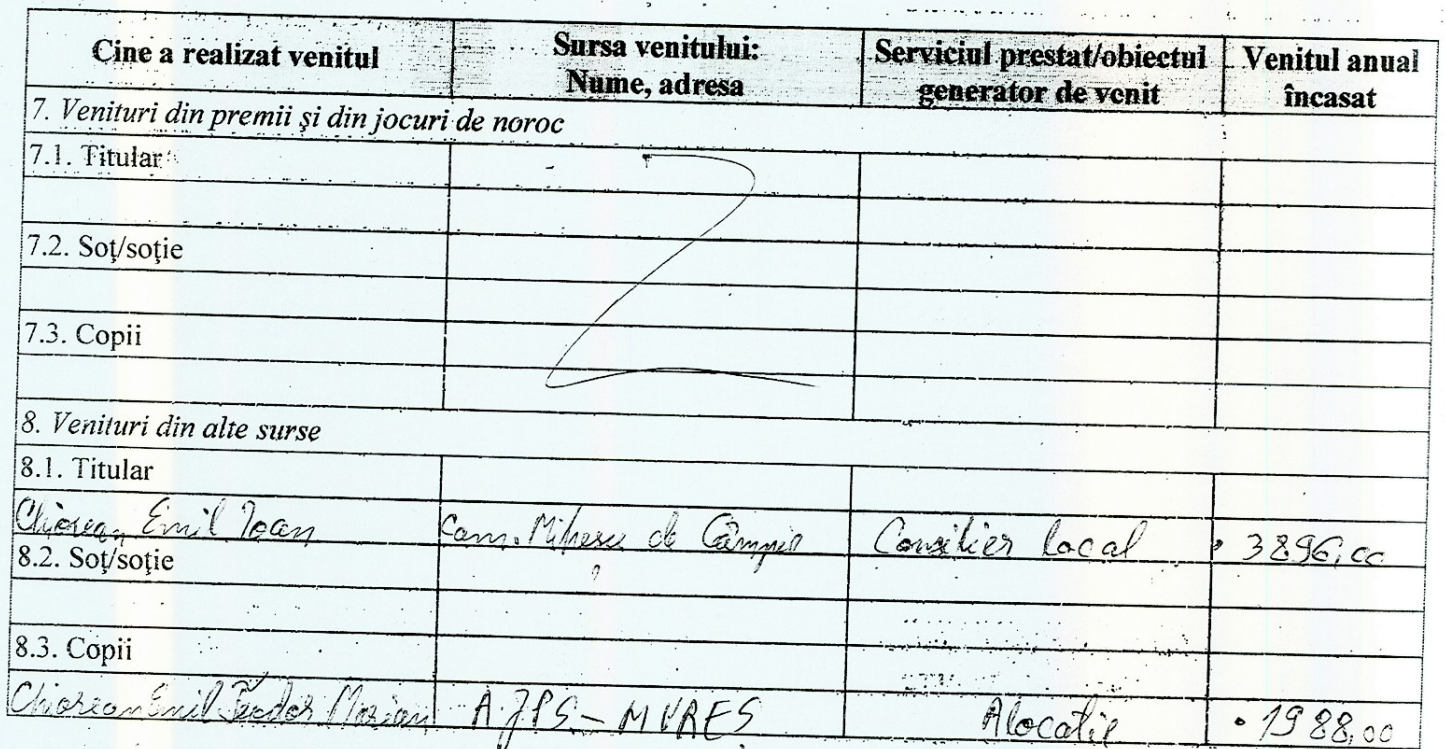 Cine a realizat venitul
Sursa venitului:
Nume, adresa
Serviciul prestat/obiectul
generator de venit
Venitul anual
încasat
7. Venituri din premii şi din jocuri de noroc
7.1. Titular
7.2. Soţ/soţie
7.3. Copii
8. Venituri din alte surse
8.1. Titular
Chiorean Emil Ioan Com. Miheșu de Câmpie Consilier local 3896,00
8.2. Soţ/soţie
8.3. Copii
Chiorean Emil Teodor Marian AJPS - MURES Alocatie 1988,00